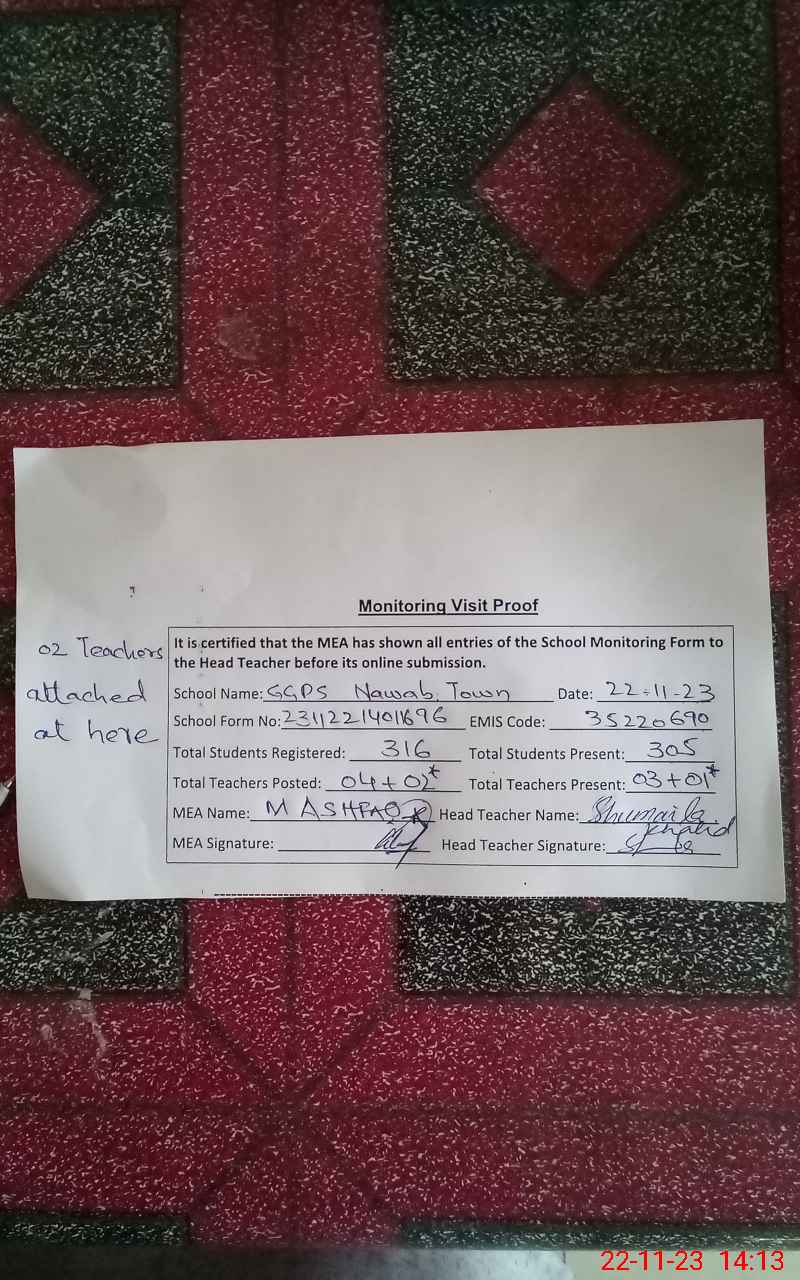 Monitoring Visit Proof
It is certified that the MEA has shown all entries of the School Monitoring Form to
the Head Teacher before its online submission.
School Name: GGPS Nawab Town Date: 22-11-23
School Form No: 2311221401696 EMIS Code: 35220690
Total Students Registered: 316 Total Students Present: 305
Total Teachers Posted: 04+02* Total Teachers Present: 03+01*
MEA Name: M ASHFAQ Head Teacher Name: Shumaila Khalid
MEA Signature: Head Teacher Signature:
02 Teachers
attached
at here
22-11-23 14:13